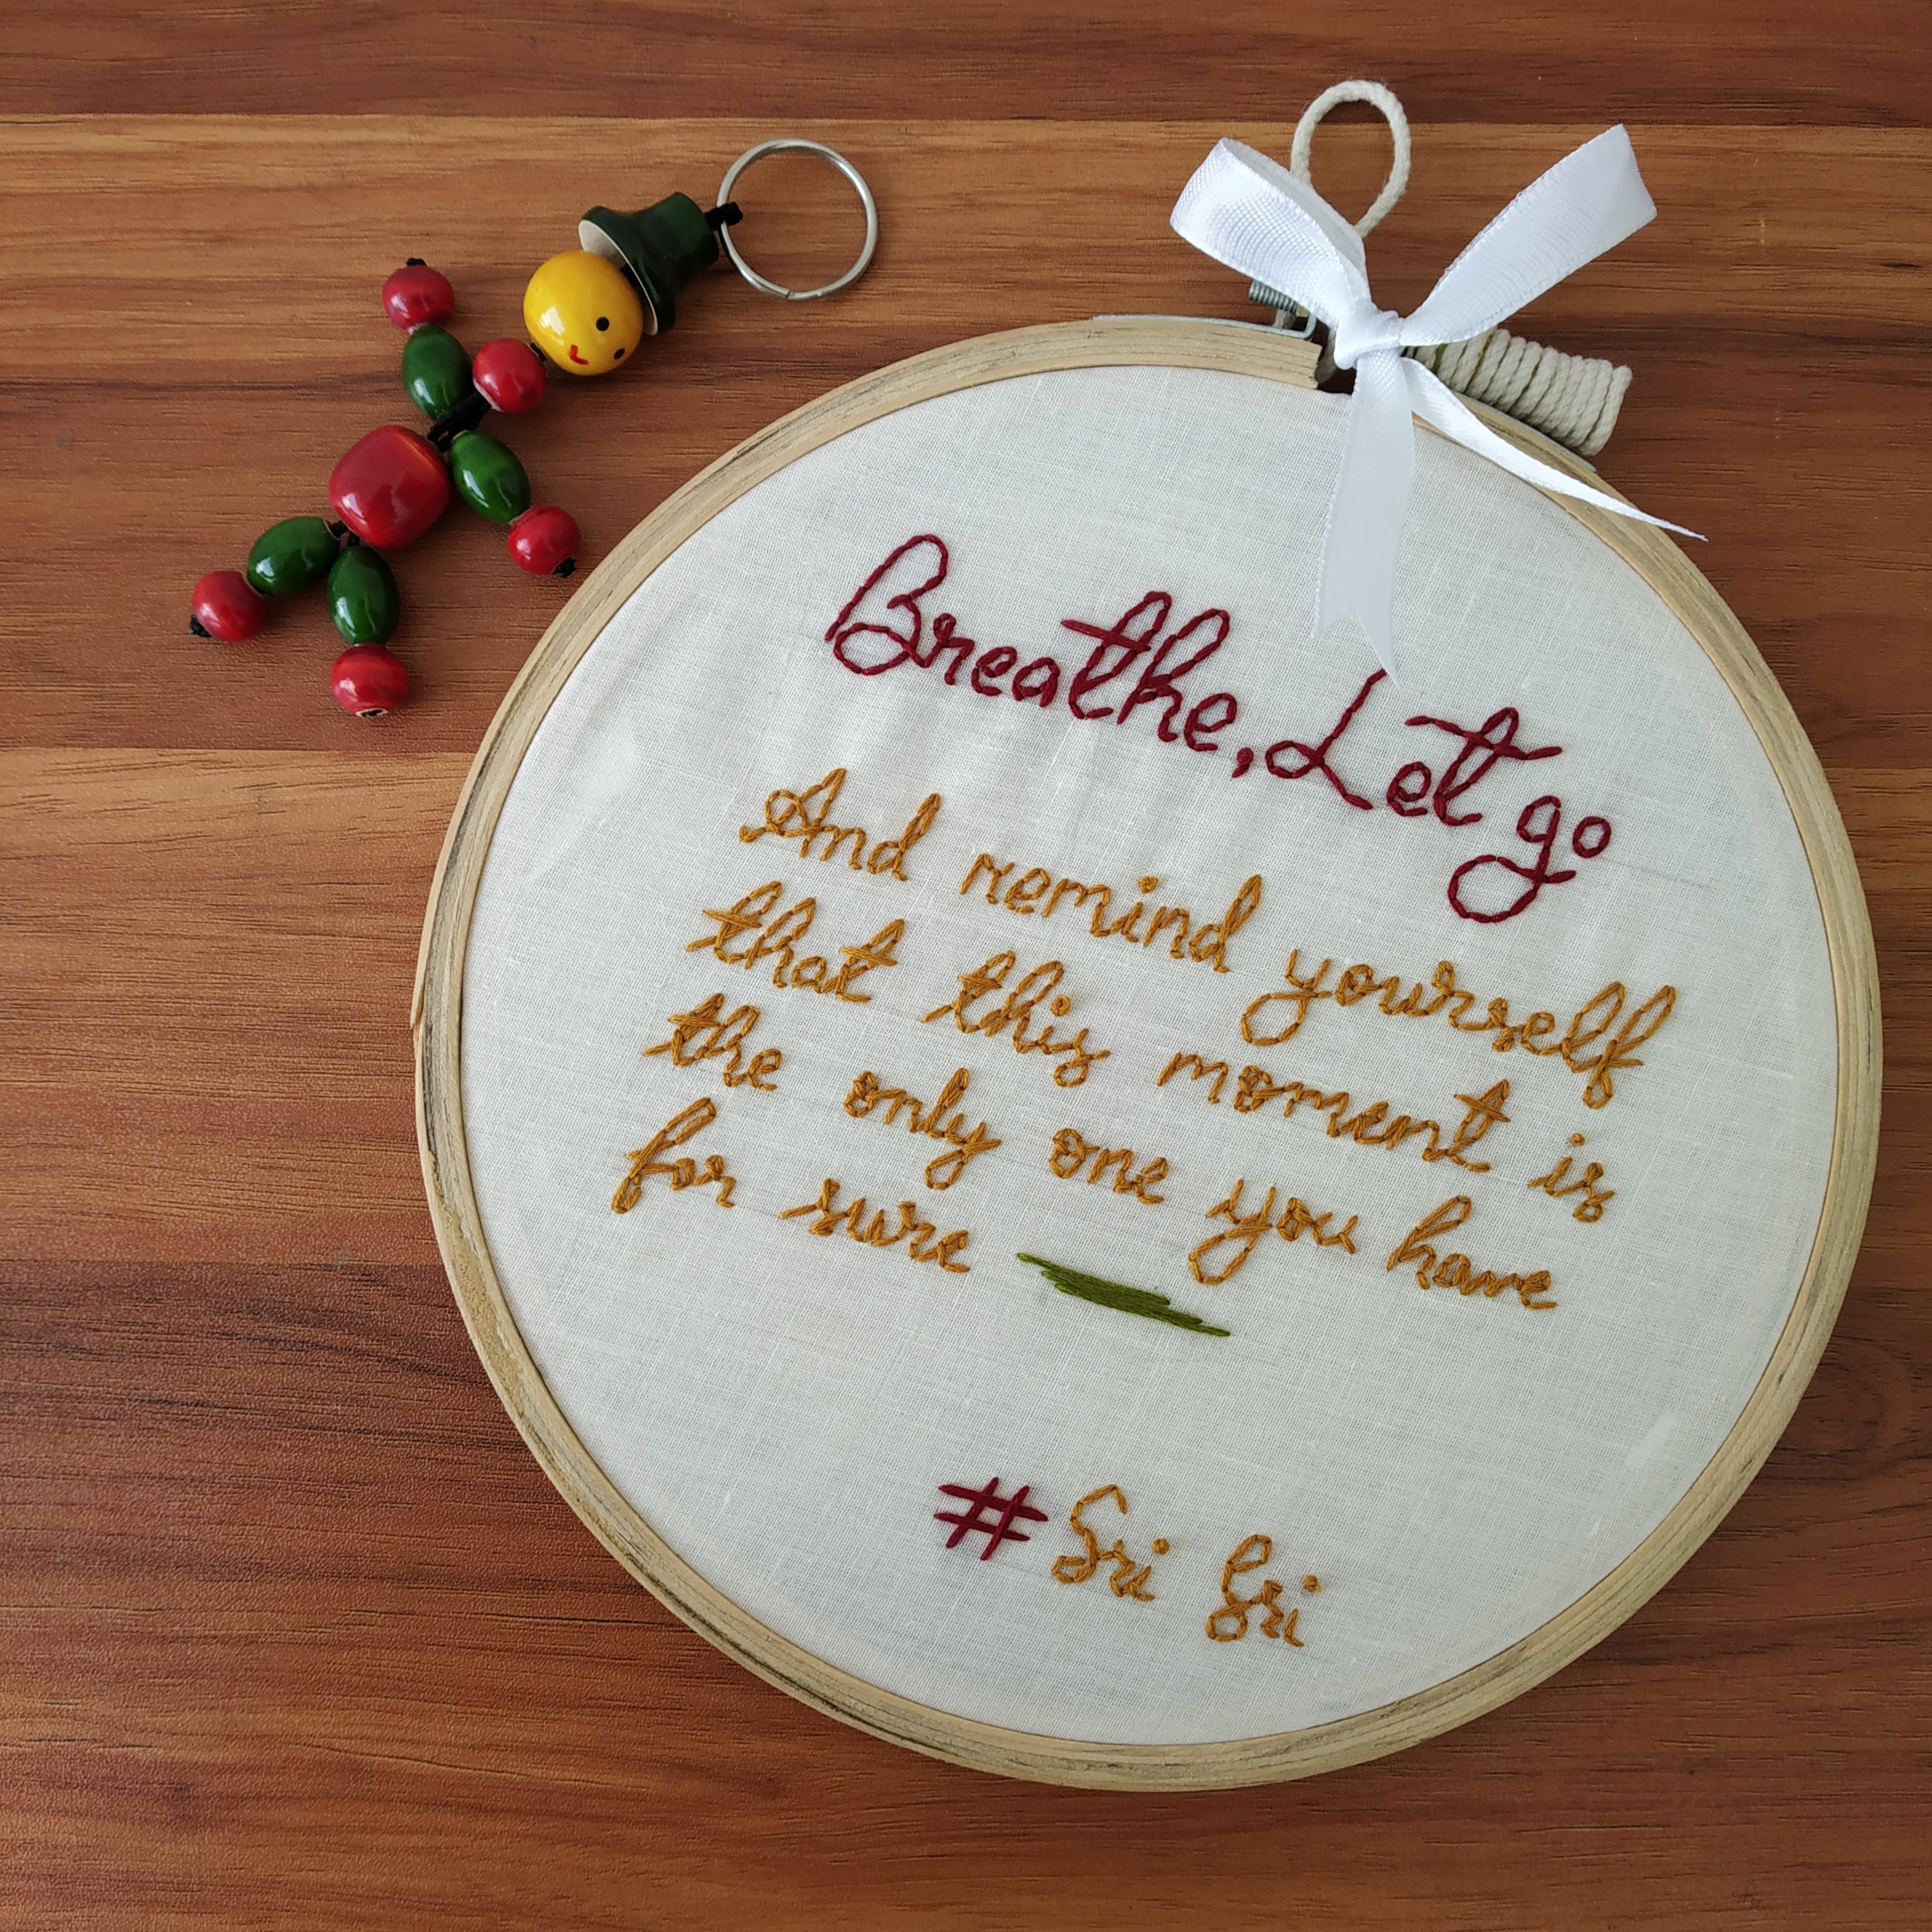 Breathe, Let go
And remind yourself
that this moment is
the only one you have
for sure
# Sri Sri